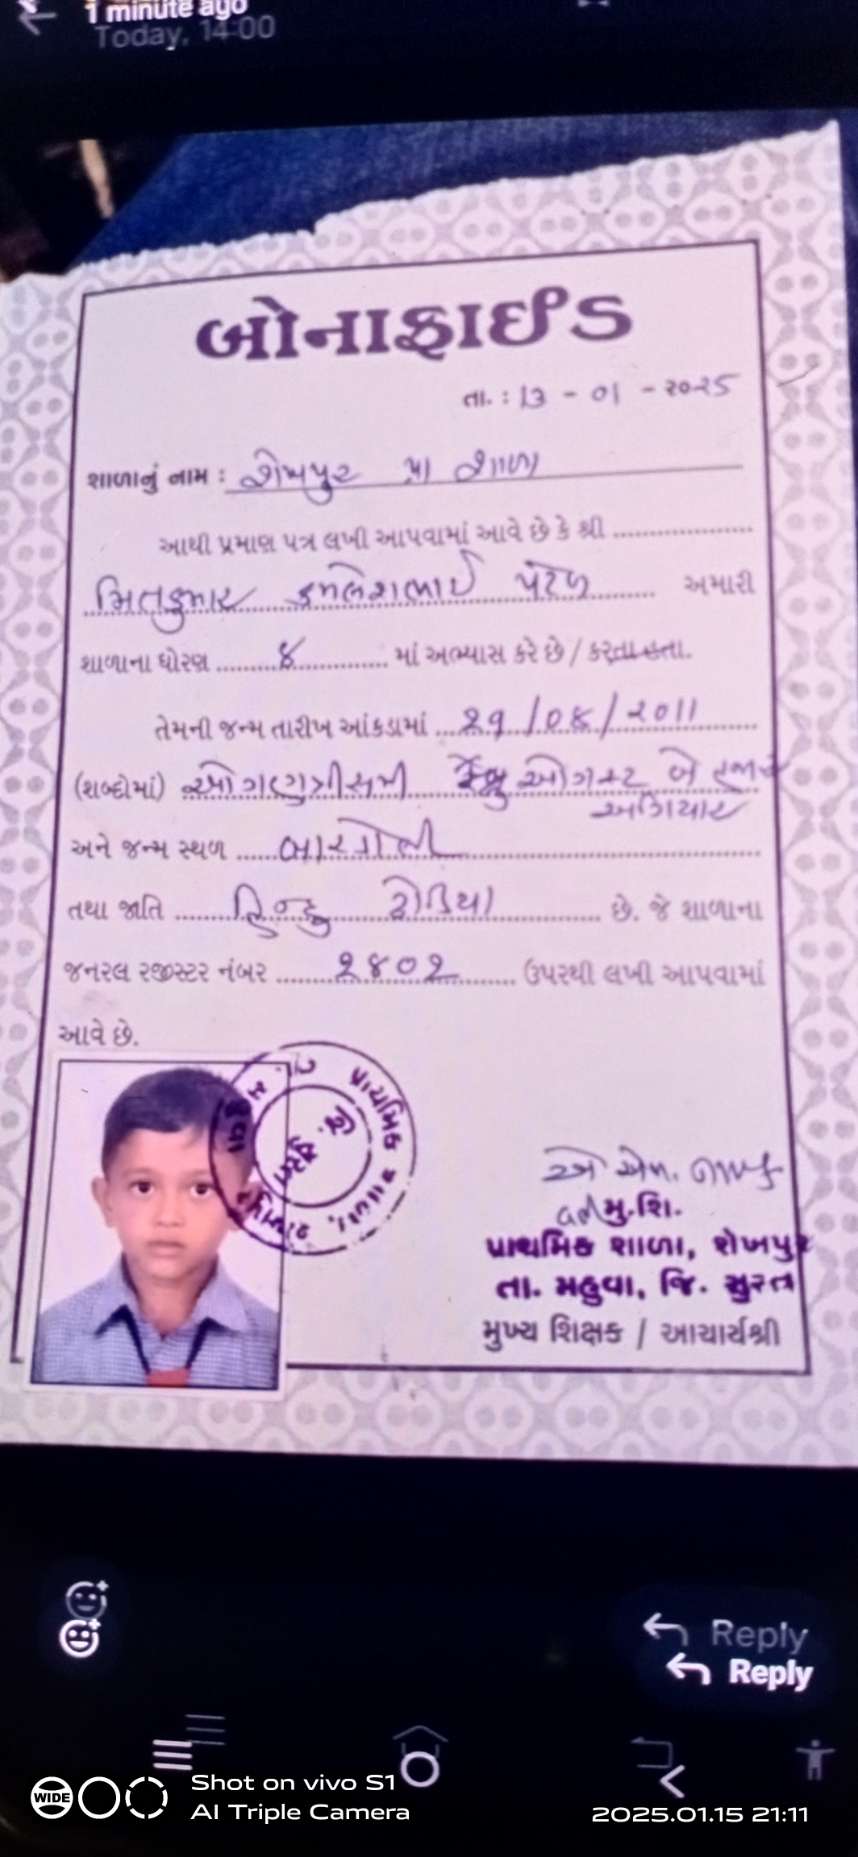 1 minute ago
Today, 14:00
બોનાફાઈડ
તા. : 13 - 01 - ૨૦૨5
શાળાનું નામ : શેખપુર પ્રા શાળા
આથી પ્રમાણ પત્ર લખી આપવામાં આવે છે કે શ્રી
મિતકુમાર કમલેશભાઈ પટેલ અમારી
શાળાના ધોરણ ૪ માં અભ્યાસ કરે છે / કરતા હતા.
તેમની જન્મ તારીખ આંકડામાં /૦૪/૨૦11
(શબ્દોમાં) ઓગણત્રીસમી ઓગસ્ટ બે હજાર
અગિયાર
અને જન્મ સ્થળ બારડોલી
તથા જાતિ હિન્દુ ઢોડિયા છે. જે શાળાના
જનરલ રજીસ્ટર નંબર ૨૪૦૨ ઉપરથી લખી આપવામાં
આવે છે.
પ્રાથમિક શાળા, શેખપુર
જિ. સુરત
મુ.શિ.
પ્રાથમિક શાળા, શેખપુર
તા. મહુવા, જિ. સુરત
મુખ્ય શિક્ષક / આચાર્યશ્રી
Reply
Reply
WIDE
Shot on vivo S1
AI Triple Camera
2025.01.15 21:11